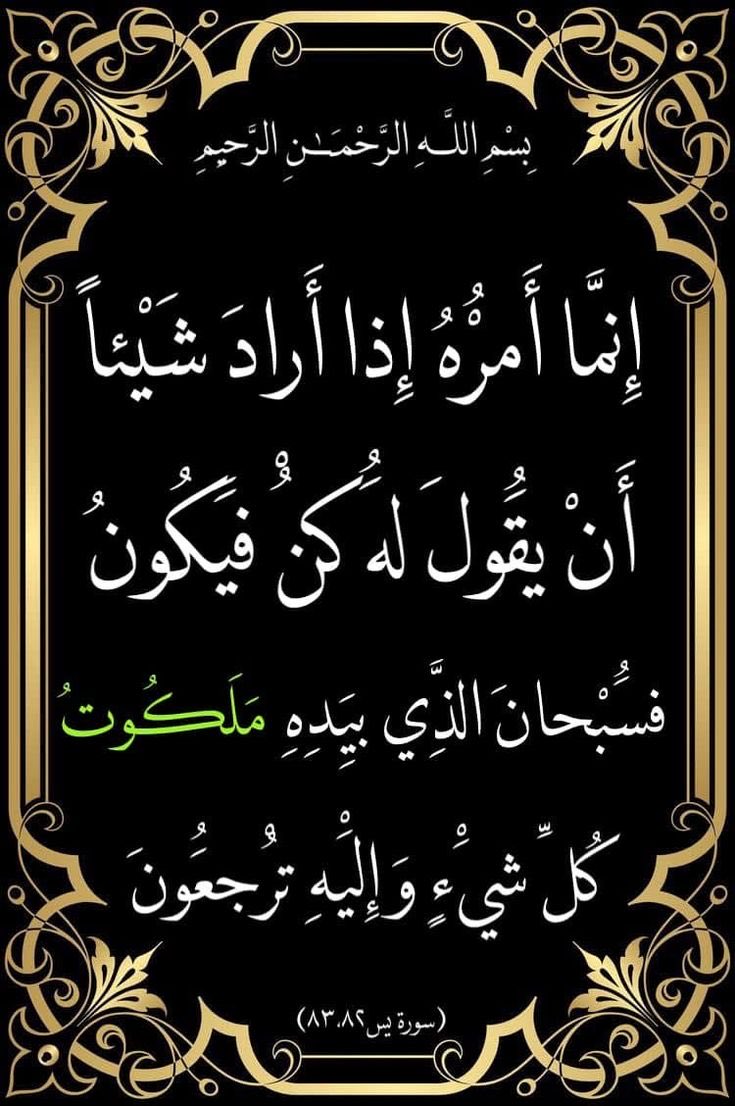 بِسْمِ اللَّـهِ الرَّحْمَـٰنِ الرَّحِيمِ
إِنَّمَا أَمْرُهُ إِذا أَرادَ شَيْئاً
أَنْ يَقُولَ لَهُ كُنْ فَيَكُونُ
فَسُبْحانَ الذَّي بِيَدِهِ مَلَكُوتُ
كُلِّ شَيْءٍ وَإِلَيْهِ تُرْجَعُونَ
(سورة يس٨٣،٨٢)